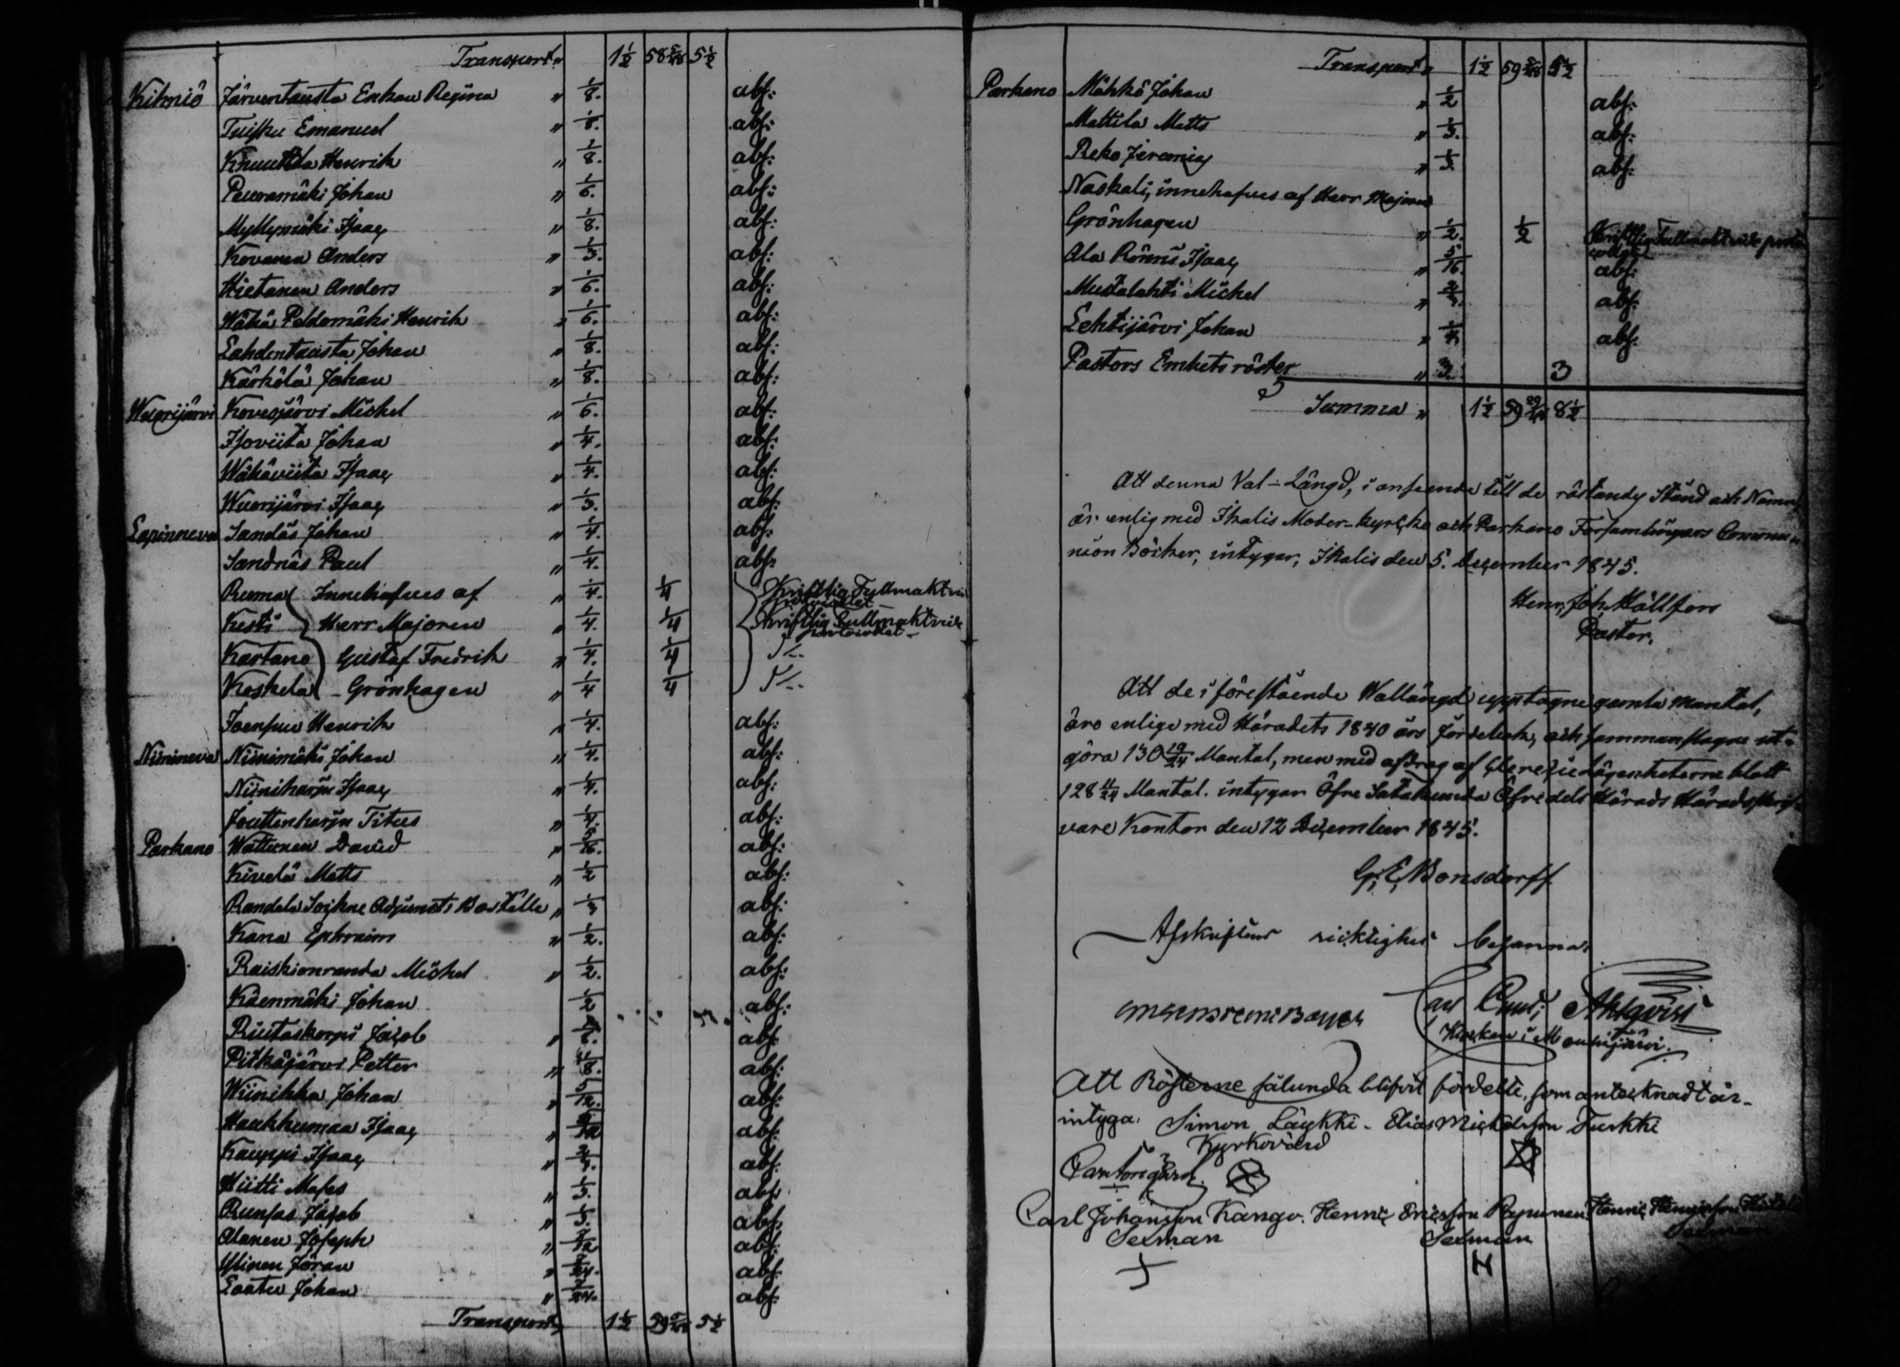 Transport " 1 1/2 58 5/48 5 1/2
Kihniö Järventausta Enkan Regina " 1/8. abs:
Tuisku Emanuel " 1/8. abs:
Knuuttila Henrik " 1/8. abs:
Peuramäki Johan " 1/6. abs:
Myllymäki Isaac " 1/8. abs:
Kovanen Anders " 1/3. abs:
Hietanen Anders " 1/6. abs:
Wähä Peldomäki Henrik " 1/6. abs:
Lahdentausta Johan " 1/8. abs:
Kärkölä Johan " 1/8. abs:
Wuorijärvi Kovesjärvi Michel " 1/6. abs:
Isoviita Johan " 1/4. abs:
Wähäviita Isaac " 1/4. abs:
Wuorijärvi Isaac " 1/3. abs:
Lapinneva Sandås Johan " 1/4. abs:
Sandnäs Paul " 1/4. abs:
Ruma Innehafves af " 1/4. 1/4 Skriftlig Fullmakt
Kesti Herr Majoren " 1/4. 1/4 Skriftlig Fullmakt
Kartano Gustaf Fredrik " 1/4. 1/4
Koskela - Grönhagen " 1/4 1/4
Joensuu Henrik " 1/4. abs:
Niinineva Niinimäki Johan " 1/4. abs:
Niiniharju Isaac " 1/4. abs:
Jouttenharju Titus " 1/4. abs:
Parkano Wattunen David " 5/16. abs:
Kivelä Matts " 1/2 abs:
Randala Sockne Adjuncts Boställe " 1/3 abs:
Kana Ephraim " 1/2. abs:
Raiskionranda Michel " 1/2. abs:
Käenmäki Johan 1/2 abs:
Riutaskorpi Jacob " abs:
Pitkäjärvi Petter " abs:
Wiinikka Johan " 5/12. abs:
Haukkumaa Isaac " abs:
Kauppi Isaac " abs:
Hiitti Moses " 1/3. abs:
Runsas Jacob " 1/3. abs:
Alanen Joseph " abs:
Ylinen Jöran " abs:
Laatu Johan " abs:
Transport " 1 1/2 59 5/48 5 1/2
Transport " 1 1/2 59 5/48 5 1/2
Parkano Mähkö Johan " 1/2 abs:
Mattila Matts " 1/3. abs:
Reko Jeremias " 1/3. abs:
Naskali, innehafves af Herr Majoren
Grönhagen " 1/2. 1/2 Skriftlig Fullmakt
Ala Rönni Isaac " 5/16. abs:
Mustalahti Michel " abs:
Lehtijärvi Johan " 1/4. abs:
Pastors Embets röster " 3. 3
Summa " 1 1/2 59 29/48 8 1/2
Att denna Val-Längd, i anseende till de röstandes Stånd och Namn,
är enlig med Ikalis Moder-kyrko och Parkano Församlingars Commu-
nion Böcker, intygar, Ikalis den 5. December 1845.
Henr. Joh. Hällfors
Pastor.
Att de i förestående Wallängd upptagne gamla mantal,
äro enlige med Häradets 1840 års Jordebok, och sammanslagne ut-
göra 130 19/24 Mantal, men med afdrag af Clerecie lägenheterne blott
128 11/24 Mantal. intygar Öfre Satakunda Öfredels Härads Häradsskrif-
vare Kontor den 12 December 1845.
G. E. Bonsdorff.
Afskriftens riktighet besannar
Carl Ahlqvist
Att Rösterne sålunda blifvit fördelte, som antecknadt är-
intyga: Simon Läykki - Elias Michelsson Turkki
Kyrkovärd
Carl Johansson Kango. Henric Ericsson Repunen. Henric Henricsson
Sexman Sexman